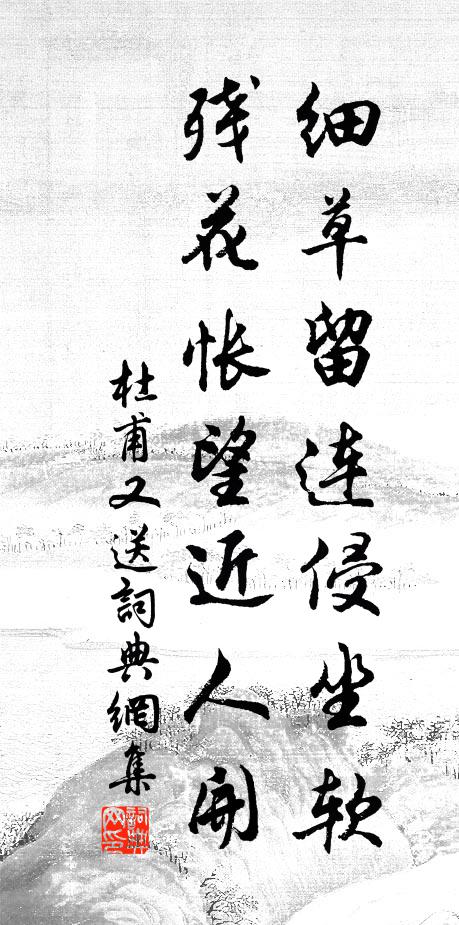 细草留连侵坐软
残花怅望近人开
杜甫又送詞典網集